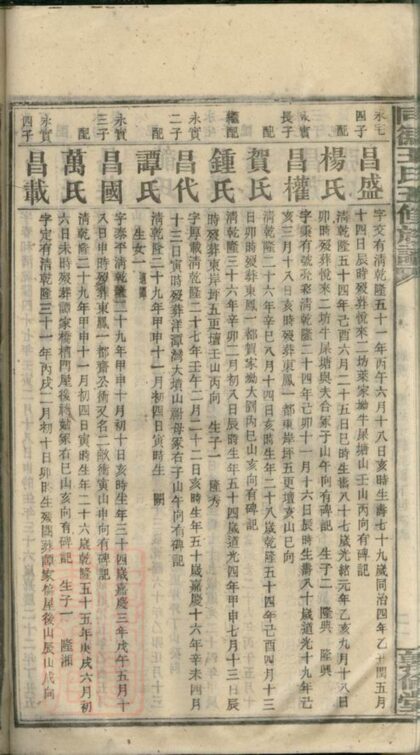 永屯四子 昌盛
字交有清乾隆五十一年丙午六月十八日亥時生壽七十九歲同治四年乙丑閏五月
十四日辰時歿葬悅來二坊菜家坳牛屎塘山壬山丙向有碑記
配 楊氏
清乾隆五十四年己酉六月二十五日巳時生壽八十七歲光緒元年乙亥九月十八日
卯時歿葬悅來二坊牛屎塘與夫合冢子山午向有碑記 生子二 隆典 隆興
永實長子 昌權
字秉有號 清乾隆二十四年己卯十一月十六日辰時生壽八十歲道光十九年己
亥三月十八日亥時歿葬東鳳一都東岸坪五更壇亥山巳向
配 賀氏
清乾隆二十六年辛巳八月十四日亥時生年二十八歲乾隆五十四年己酉四月十三
日卯時歿葬東鳳一都賀家坳大劉丙巳山亥向有碑記
繼配 鍾氏
清乾隆三十六年辛卯二月初八日辰時生年五十四歲道光四年甲申七月十三日辰
時歿葬東岸坪五更壇壬山丙向 生子一 隆秀
二子 昌代
字厚載清乾隆二十七年壬午二月二十二日亥時生年五十歲嘉慶十六年辛未四月
十三日寅時歿葬洋潭灣大墳山 母冢右子山午向有碑記
配 譚氏
清乾隆二十九年甲申十一月初四日寅時生 闕
生女一
永實三子 昌國
字泰平清乾隆二十九年甲申十月初十日亥時生年三十四歲嘉慶三年戊午五月十
八日申時歿葬東鳳一都齋公衝又名二畝衝寅山申向有碑記
配 萬氏
清乾隆二十九年甲申十一月初四日寅時生年二十六歲乾隆五十五年庚戌六月初
六日未時歿葬譚家橋槽門屋後 姑冢右巳山亥向有碑記 生子一 隆湘
永實四子 昌載
字定有清乾隆三十一年丙戌二月初十日卯時生歿 葬譚家 屋後山辰山戌向